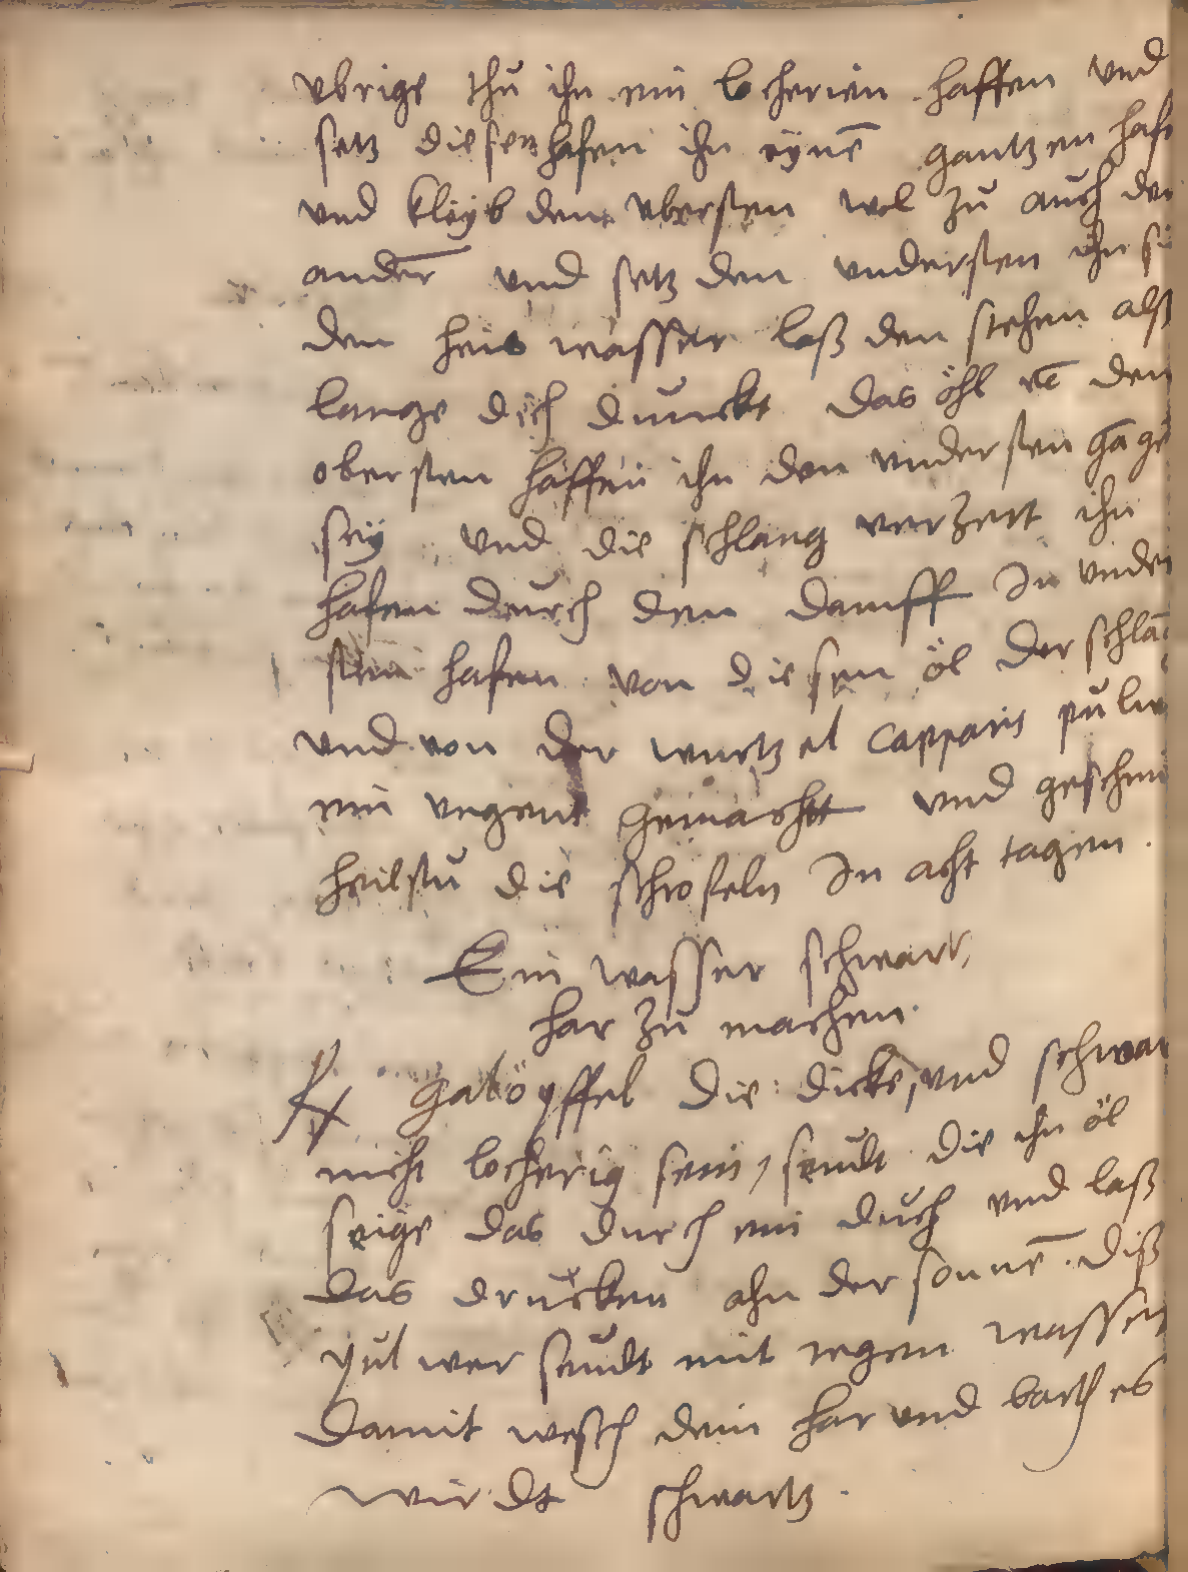 vbrige thu ihn ein locherien haffen vnd
setz diesen hafen ihn eynē gantzen hafe
vnd kleyb den vbersten wol zu auch den
ander vnd setz den vndersten ihn sie
den heis wasser laß den stehen alß
lange dich dunckt das öhl vō den
obersten haffen ihn den vndersten gāge
sey vnd die schlang verzert ihn
hafen durch den dampff In vnder
sten hafen von diesen öl der schlā
vnd von der wurtzel capparis pulu
ein vngent gemacht vnd geschmi
heilstu die schrofeln In acht tagen.
Ein wasser schwartz
har zu machen.
℞ galöpffel die dicke, vnd schwar
nicht locherig sein, seudt die ihn öl
seige das durch ein duch vnd laß
das drucken ahn der sonnē. diß
pulwer seudt mit regen wasser
damit wesch dein har vnd barth es
wirdt schwartz.